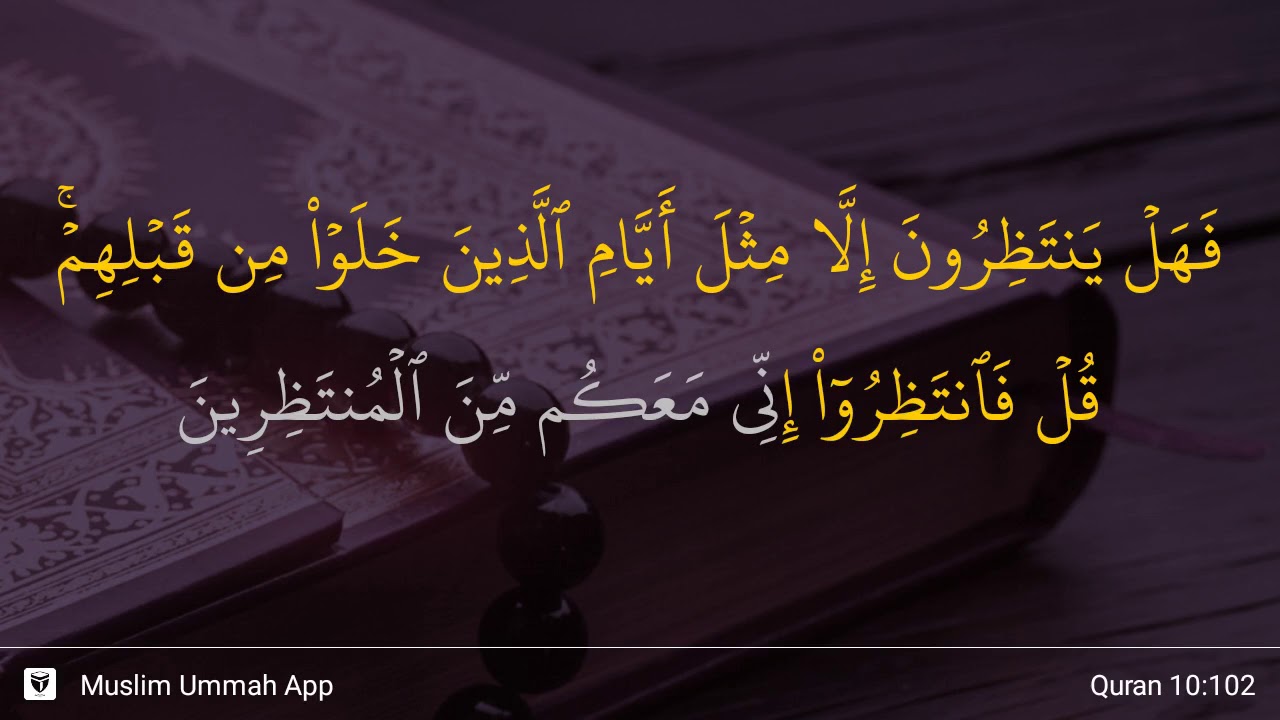 فَهَلۡ يَنتَظِرُونَ إِلَّا مِثۡلَ أَيَّامِ ٱلَّذِينَ خَلَوۡاْ مِن قَبۡلِهِمۡۚ
قُلۡ فَٱنتَظِرُوٓاْ إِنِّي مَعَكُم مِّنَ ٱلۡمُنتَظِرِينَ
Muslim Ummah App
Quran 10:102